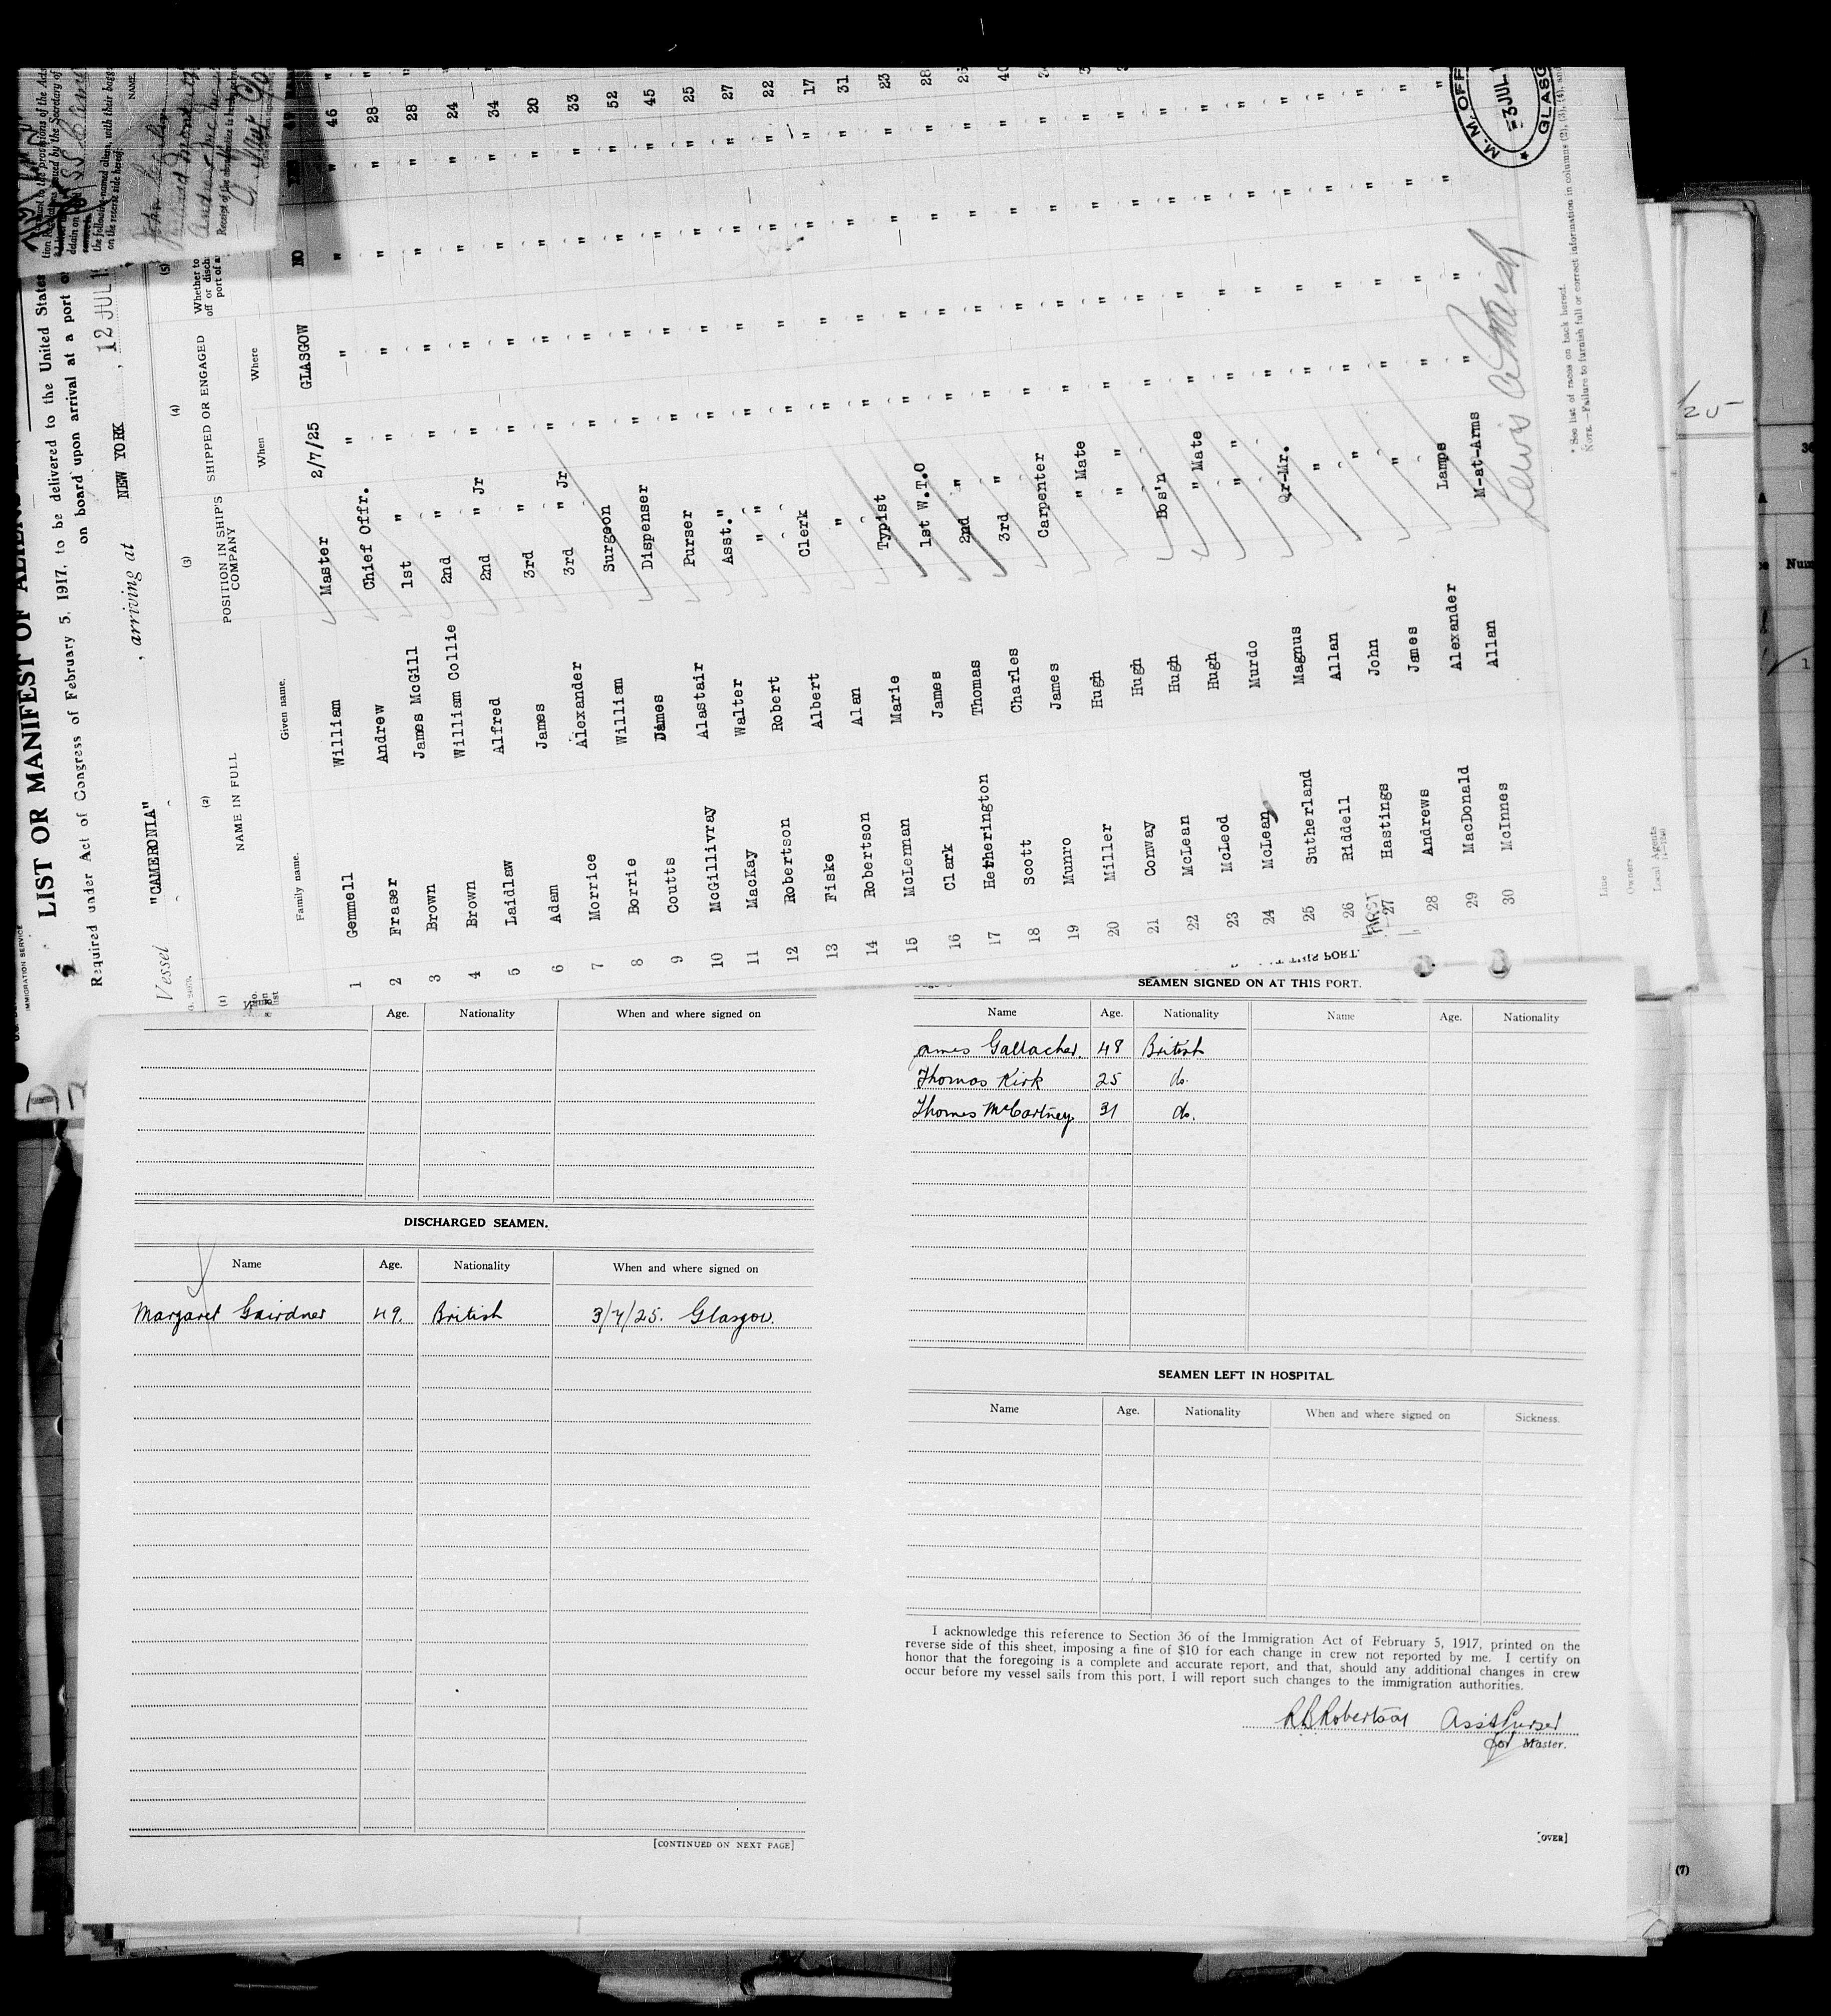 LIST OR MANIFEST OF ALIENS
Required under Act of Congress of February 5, 1917, to be delivered to the United States
on board upon arrival at a port of
Vessel "CAMERONIA" , arriving at NEW YORK , 12 JUL 1
IMMIGRATION SERVICE
(1) (2) (3) (4) (5)
NAME IN FULL POSITION IN SHIP'S COMPANY SHIPPED OR ENGAGED Whether to
off or disch
port of a
Family name. Given name. When Where
2/7/25 GLASGOW NO
1 Gemmell William Master " " " " 46
2 Fraser Andrew Chief Offr. " " " " 28
3 Brown James McGill 1st " " " " " 28
4 Brown William Collie 2nd " " " " " 24
5 Laidlaw Alfred 2nd " Jr " " " " 34
6 Adam James 3rd " " " " " 20
7 Morrice Alexander 3rd " Jr. " " " " 33
8 Borrie William Surgeon " " " " 52
9 Coutts James Dispenser " " " " 45
10 McGillivray Alastair Purser " " " " 25
11 MacKay Walter Asst." " " " " 27
12 Robertson Robert " " " " " " 22
13 Fiske Albert Clerk " " " " 17
14 Robertson Alan " " " " " 31
15 McLernan Marie Typist " " " " 23
16 Clark James 1st W.T.O " " " " 28
17 Hetherington Thomas 2nd " " " " "
18 Scott Charles 3rd " " " " "
19 Munro James Carpenter " " " "
20 Miller Hugh " Mate " " " "
21 Conway Hugh " " " " " "
22 McLean Hugh Bos'n " " " "
23 McLeod Hugh " Mate " " " "
24 McLean Murdo " " " " " "
25 Sutherland Magnus Qr-Mr. " " " "
26 Riddell Allan " " " " "
27 Hastings John " " " " "
28 Andrews James " " " " "
29 MacDonald Alexander Lamps " " " "
30 McInnes Allan M-at-Arms " " " "
* See list of races on back hereof.
NOTE.—Failure to furnish full or correct information in columns (2), (3), (4), and
Line
Owners
Local Agents
M. M. OFF
3 JUL 1
GLASG
the following-named aliens, with their bagg
on the reverse side hereof:
NAME.
Age. Nationality When and where signed on
DISCHARGED SEAMEN.
Name Age. Nationality When and where signed on
Margaret Gairdner 49. British 3/7/25. Glasgow.
[CONTINUED ON NEXT PAGE]
SEAMEN SIGNED ON AT THIS PORT.
Name Age. Nationality Name Age. Nationality
James Gallacher. 48 British
Thomas Kirk 25 do.
Thomas McCartney. 31 do.
SEAMEN LEFT IN HOSPITAL.
Name Age. Nationality When and where signed on Sickness.
I acknowledge this reference to Section 36 of the Immigration Act of February 5, 1917, printed on the
reverse side of this sheet, imposing a fine of $10 for each change in crew not reported by me. I certify on
honor that the foregoing is a complete and accurate report, and that, should any additional changes in crew
occur before my vessel sails from this port, I will report such changes to the immigration authorities.
R B Robertson Asst Purser
for Master.
[OVER]
(7)